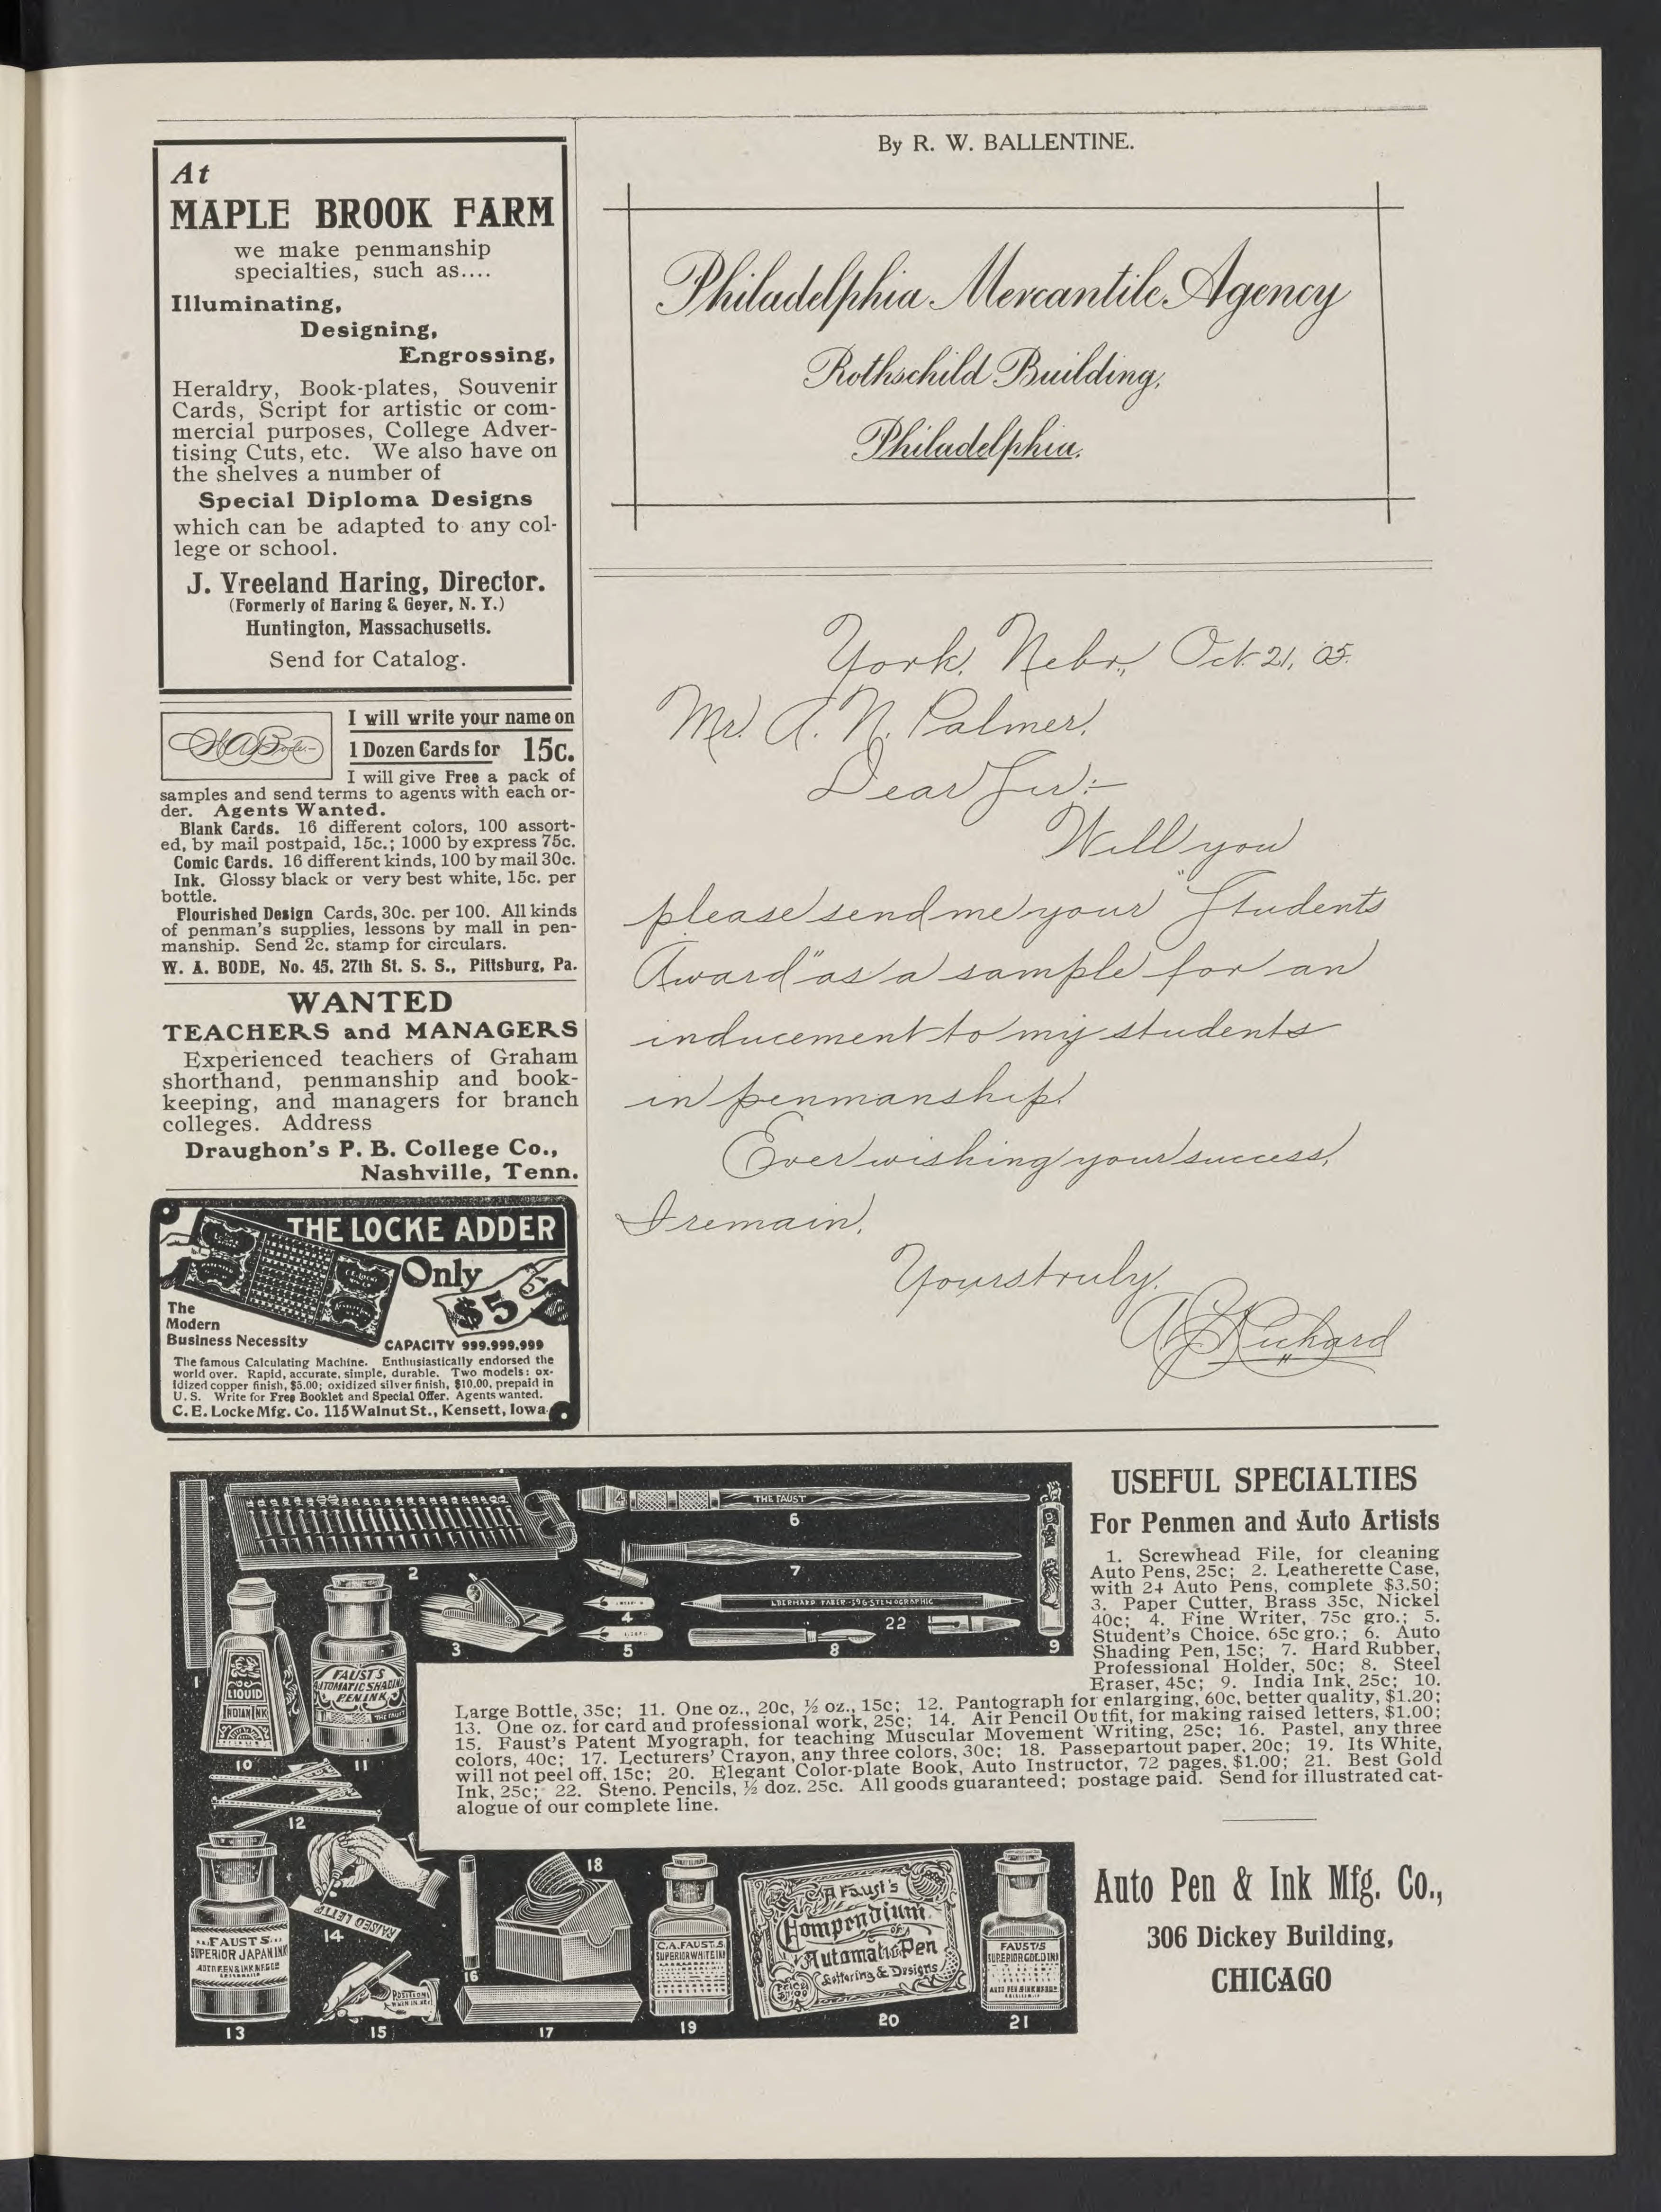 At
MAPLE BROOK FARM
we make penmanship
specialties, such as....
Illuminating,
Designing,
Engrossing,
Heraldry, Book-plates, Souvenir
Cards, Script for artistic or com-
mercial purposes, College Adver-
tising Cuts, etc. We also have on
the shelves a number of
Special Diploma Designs
which can be adapted to any col-
lege or school.
J. Vreeland Haring, Director.
(Formerly of Haring & Geyer, N. Y.)
Huntington, Massachusetts.
Send for Catalog.
W A Bode
I will write your name on
1 Dozen Cards for 15c.
I will give Free a pack of
samples and send terms to agents with each or-
der. Agents Wanted.
Blank Cards. 16 different colors, 100 assort-
ed, by mail postpaid, 15c.; 1000 by express 75c.
Comic Cards. 16 different kinds, 100 by mail 30c.
Ink. Glossy black or very best white, 15c. per
bottle.
Flourished Design Cards, 30c. per 100. All kinds
of penman's supplies, lessons by mail in pen-
manship. Send 2c. stamp for circulars.
W. A. BODE, No. 45, 27th St. S. S., Pittsburg, Pa.
WANTED
TEACHERS and MANAGERS
Experienced teachers of Graham
shorthand, penmanship and book-
keeping, and managers for branch
colleges. Address
Draughon's P. B. College Co.,
Nashville, Tenn.
THE LOCKE ADDER
Only
$5
The
Modern
Business Necessity
CAPACITY 999.999.999
The famous Calculating Machine. Enthusiastically endorsed the
world over. Rapid, accurate, simple, durable. Two models: ox-
idized copper finish, $5.00; oxidized silver finish, $10.00, prepaid in
U. S. Write for Free Booklet and Special Offer. Agents wanted.
C. E. Locke Mfg. Co. 115 Walnut St., Kensett, Iowa
By R. W. BALLENTINE.
Philadelphia Mercantile Agency
Rothschild Building,
Philadelphia.
York, Nebr., Oct. 21, '05.
Mr. A. N. Palmer,
Dear Sir:—
Will you
please send me your "Students
Award" as a sample for an
inducement to my students
in penmanship.
Ever wishing your success,
I remain,
Yours truly,
Richard
THE FAUST
4
6
2
7
EBERHARD FABER-396-STENOGRAPHIC
4
22
3
5
8
9
1
LIQUID
INDIAN INK
FAUST'S
AUTOMATIC SHADING
PEN INK
THE FAUST
10
11
12
USEFUL SPECIALTIES
For Penmen and Auto Artists
1. Screwhead File, for cleaning
Auto Pens, 25c; 2. Leatherette Case,
with 24 Auto Pens, complete $3.50;
3. Paper Cutter, Brass 35c, Nickel
40c; 4. Fine Writer, 75c gro.; 5.
Student's Choice. 65c gro.; 6. Auto
Shading Pen, 15c; 7. Hard Rubber,
Professional Holder, 50c; 8. Steel
Eraser, 45c; 9. India Ink, 25c; 10.
Large Bottle, 35c; 11. One oz., 20c, ½ oz., 15c; 12. Pantograph for enlarging, 60c, better quality, $1.20;
13. One oz. for card and professional work, 25c; 14. Air Pencil Outfit, for making raised letters, $1.00;
15. Faust's Patent Myograph, for teaching Muscular Movement Writing, 25c; 16. Pastel, any three
colors, 40c; 17. Lecturers' Crayon, any three colors, 30c; 18. Passepartout paper, 20c; 19. Its White,
will not peel off, 15c; 20. Elegant Color-plate Book, Auto Instructor, 72 pages, $1.00; 21. Best Gold
Ink, 25c; 22. Steno. Pencils, ½ doz. 25c. All goods guaranteed; postage paid. Send for illustrated cat-
alogue of our complete line.
FAUST'S
SUPERIOR JAPAN INK
AUTO PEN & INK MFG CO
13
RAISED LETTE
14
POSITION
WHEN IN
15
16
18
17
C.A. FAUST'S
SUPERIOR WHITE INK
19
Faust's
Compendium
of
Automatic Pen
Lettering & Designs
20
FAUST'S
SUPERIOR GOLD INK
21
Auto Pen & Ink Mfg. Co.,
306 Dickey Building,
CHICAGO